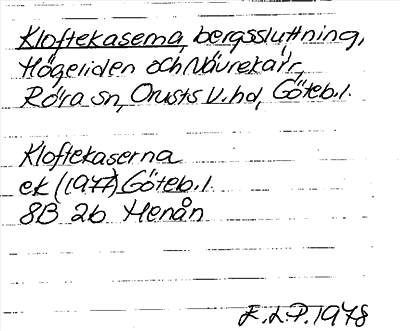 Kloftekaserna, bergssluttning,
Högeliden och Näurekärr,
Röra sn, Orusts V. hd, Göteb. l.
Kloftekaserna
ek (1977) Göteb. l.
8B 2b Henån
E.L.P. 1978